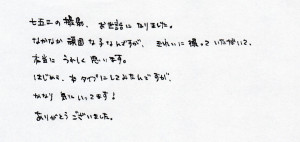 七五三の撮影、お世話になりました。
なかなか頑固な子なんですが、きれいに撮っていただいて、
本当に うれしく思います。
はじめて、本タイプにしてみたんですが、
かなり 気に入ってます!
ありがとうございました。